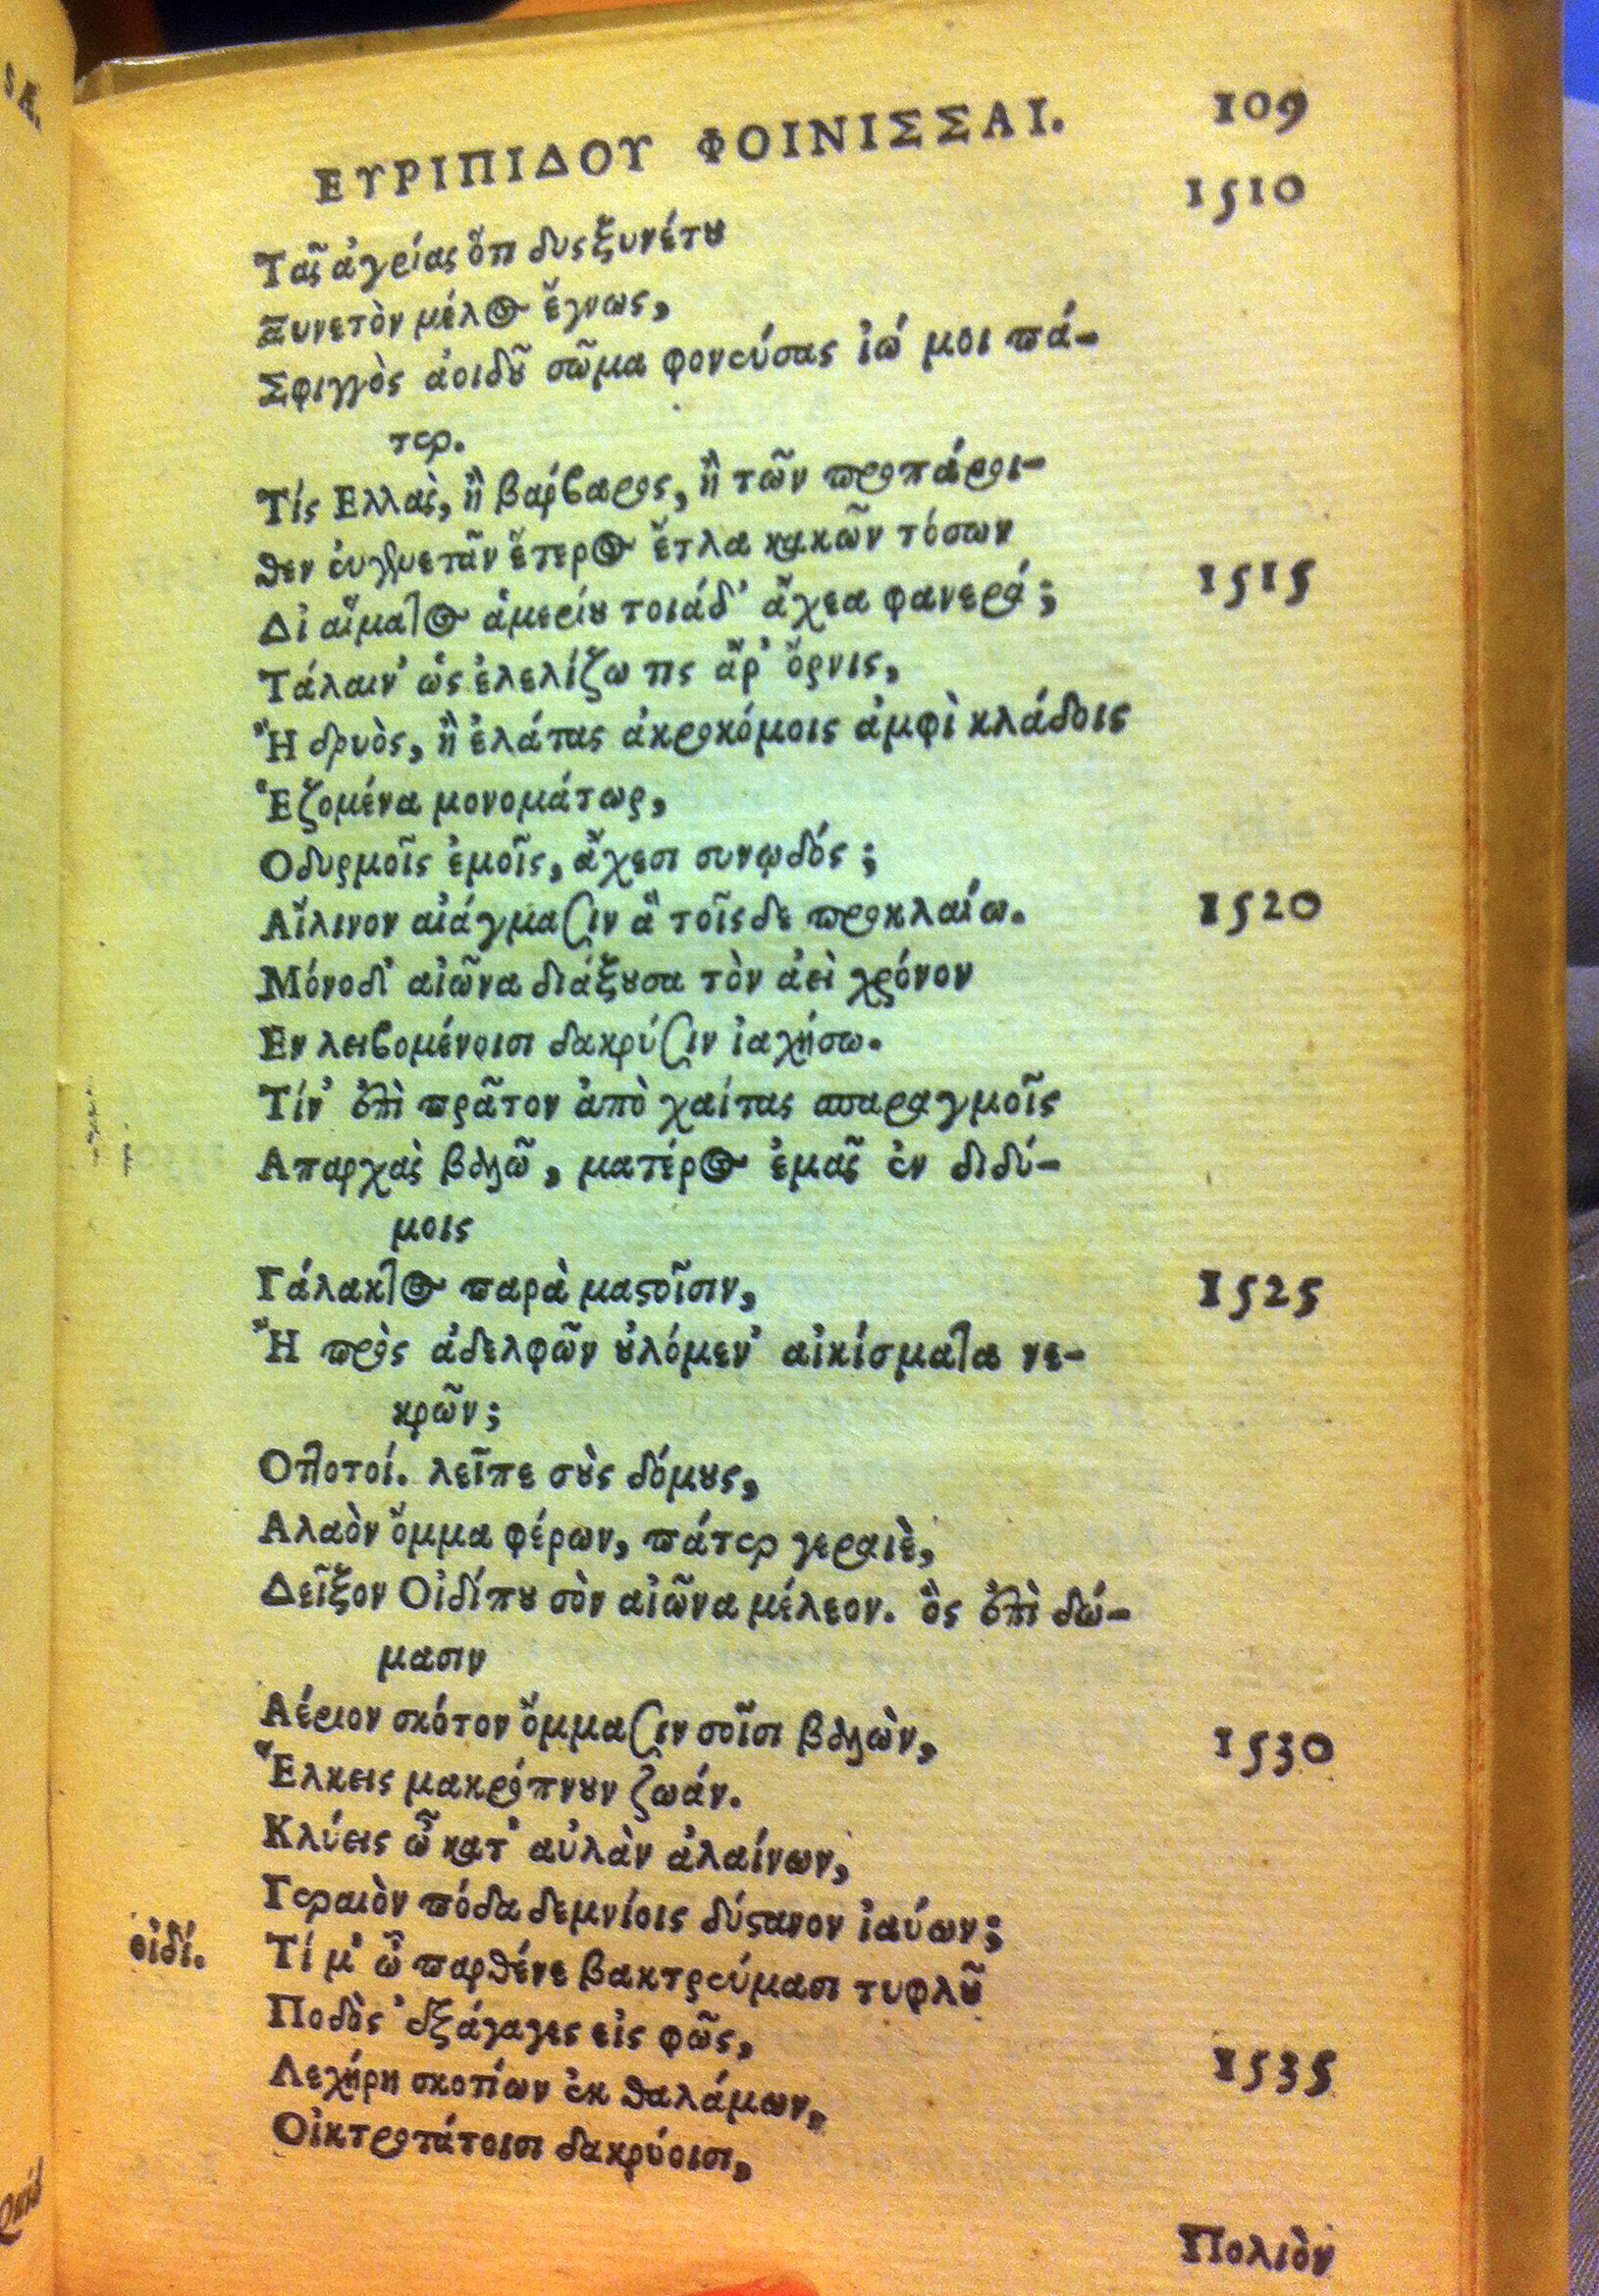 SÆ.
ΕΥΡΙΠΙΔΟΥ ΦΟΙΝΙΣΣΑΙ. 109
1510
Τᾶς ἀγρίας ὅτι δυςξυνέτου
Ξυνετὸν μέλος ἔγνως,
Σφιγγὸς ἀοιδοῦ σῶμα φονεύσας ἰώ μοι πά-
τερ.
Τίς Ελλὰς, ἢ βάρβαρος, ἢ τῶν προπάροι-
θεν εὐγενετᾶν ἕτερος ἔτλα κακῶν τόσων
Δι αἵματος ἁμερίου τοιάδ' ἄχεα φανερά; 1515
Τάλαιν' ὡς ἐλελίζω τις ἄρ' ὄρνις,
Ἢ δρυὸς, ἢ ἐλάτας ἀκροκόμοις ἀμφὶ κλάδοις
Ἑζομένα μονομάτωρ,
Οδυρμοῖς ἐμοῖς, ἄχεσι συνῳδός;
Αἴλινον αἰάγμασιν ἃ τοῖςδε προκλαίω. 1520
Μόνοδι' αἰῶνα διάξουσα τὸν ἀεὶ χρόνον
Εν λειβομένοισι δακρύσιν ἰαχήσω.
Τίν' ἐπὶ πρᾶτον ἀπὸ χαίτας σπαραγμοῖς
Απαρχὰς βάλω, ματέρος ἐμᾶς ἐν διδύ-
μοις
Γάλακτος παρὰ μαστοῖσιν, 1525
Ἢ πρὸς ἀδελφῶν οὐλόμεν' αἰκίσματα νε-
κρῶν;
Οττοτοί. λεῖπε σοὺς δόμους,
Αλαὸν ὄμμα φέρων, πάτερ γεραιὲ,
Δεῖξον Οἰδίπου σὸν αἰῶνα μέλεον. ὃς ἐπὶ δώ-
μασιν
Αέριον σκότον ὄμμασιν σοῖσι βαλὼν, 1530
Ἕλκεις μακρόπνουν ζωάν.
Κλύεις ὦ κατ' αὐλὰν ἀλαίνων,
Γεραιὸν πόδα δεμνίοις δύστανον ἰαύων;
οἰδί. Τί μ' ὦ παρθένε βακτρεύμασι τυφλοῦ
Ποδὸς ἐξάγαγες εἰς φῶς, 1535
Λεχήρη σκοτίων ἐκ θαλάμων,
Οἰκτροτάτοισι δακρύοισι,
Πολιὸν